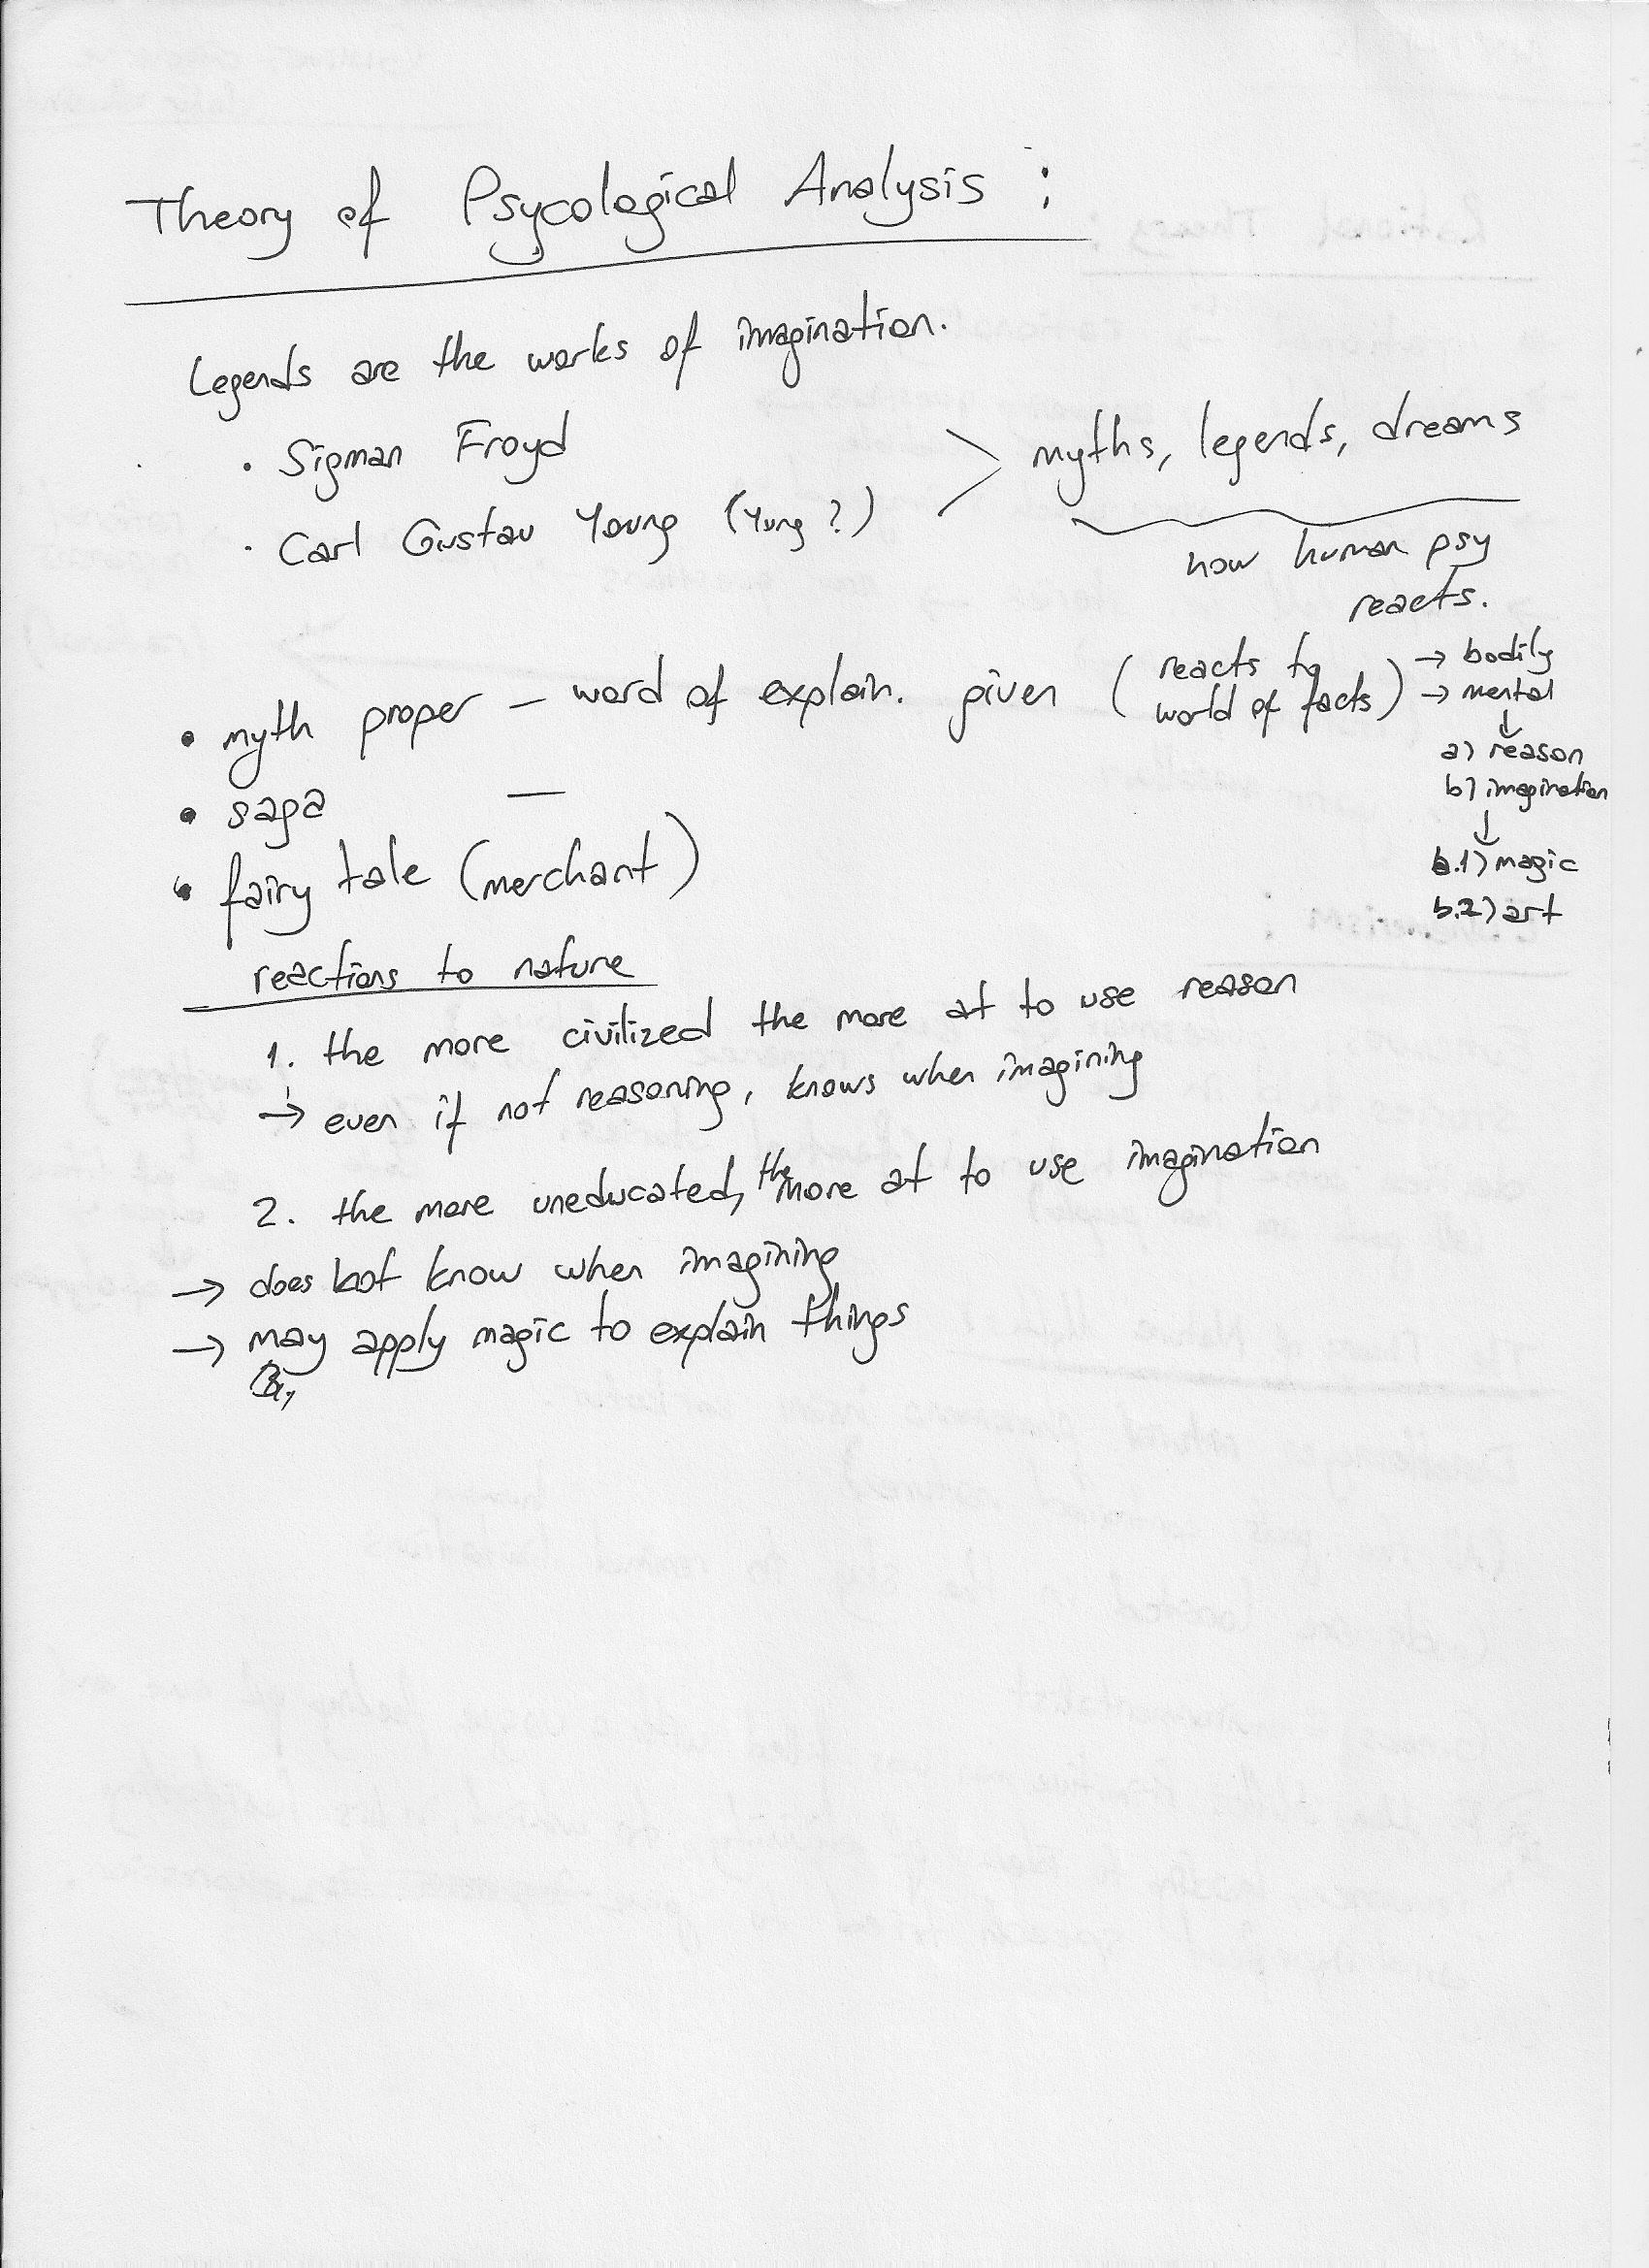 Theory of Psycological Analysis :
Legends are the works of imagination.
• Sigman Froyd
• Carl Gustav Young (Yung ?)
> myths, legends, dreams
how human psy
reacts.
• myth proper – word of explain. given ( reacts to
world of facts )
→ bodily
→ mental
↓
a) reason
b) imagination
↓
b.1) magic
b.2) art
• saga —
• fairy tale (merchant)
reactions to nature
1. the more civilized the more at to use reason
→ even if not reasoning, knows when imagining
2. the more uneducated, the more at to use imagination
→ does not know when imagining
→ may apply magic to explain things